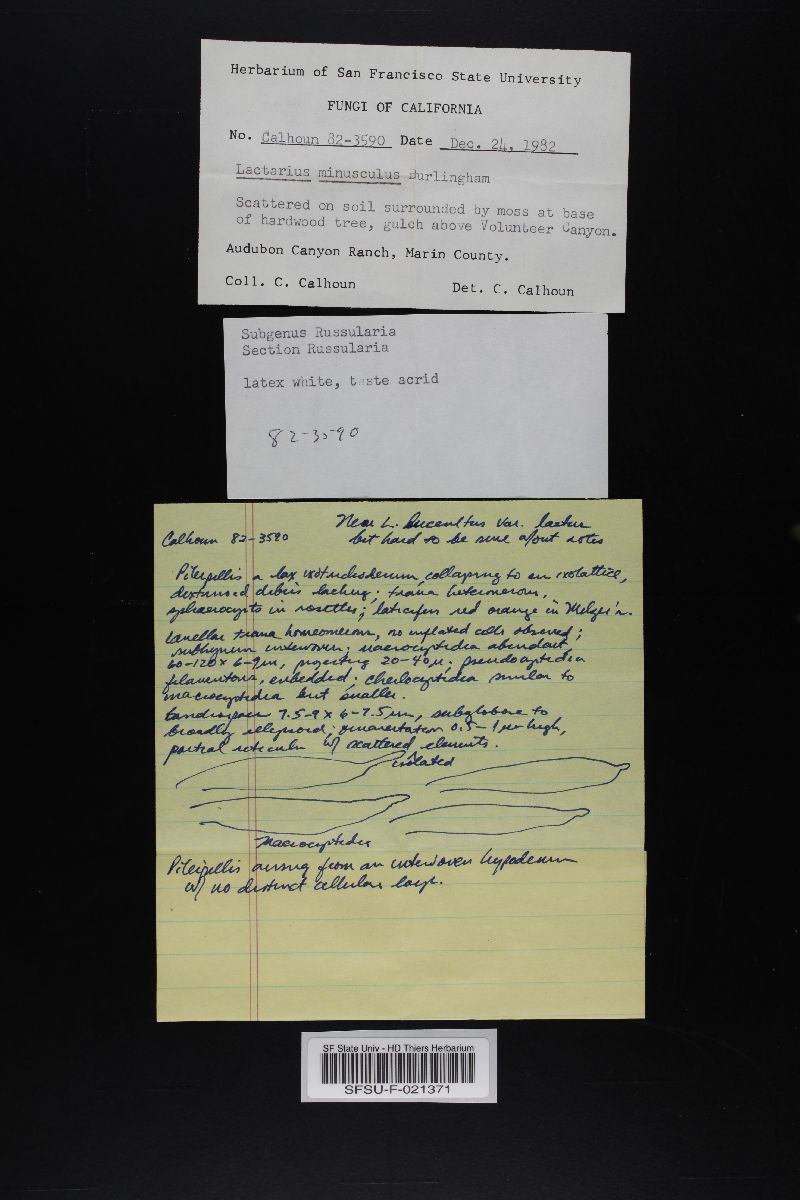 Herbarium of San Francisco State University
FUNGI OF CALIFORNIA
No. Calhoun 82-3590 Date Dec. 24, 1982
Lactarius minusculus Burlingham
Scattered on soil surrounded by moss at base
of hardwood tree, gulch above Volunteer Canyon.
Audubon Canyon Ranch, Marin County.
Coll. C. Calhoun Det. C. Calhoun
Subgenus Russularia
Section Russularia
latex white, taste acrid
82-3590
Near L. luculentus var. laetus
Calhoun 82-3590 but hard to be sure w/out notes
Pileipellis a lax ixotrichoderm, collapsing to an ixolattice,
distinct debris lacking; trama heteromerous,
sphaerocysts in rosettes; laticifers red orange in Melzer's.
Lamellar trama homeomerous, no inflated cells observed;
subhymen interwoven; macrocystidia abundant,
60-120 x 6-9 µm, projecting 20-40 µ; pseudocystidia
filamentous, embedded; cheilocystidia similar to
macrocystidia but smaller.
Basidiospores 7.5-9 x 6-7.5 µm, subglobose to
broadly ellipsoid; ornamentation 0.5-1 µm high,
partial reticulum w/ scattered elements.
isolated
Macrocystidia
Pileipellis arising from an interwoven hypoderm
w/ no distinct cellular layer.
SF State Univ - HD Thiers Herbarium
SFSU-F-021371